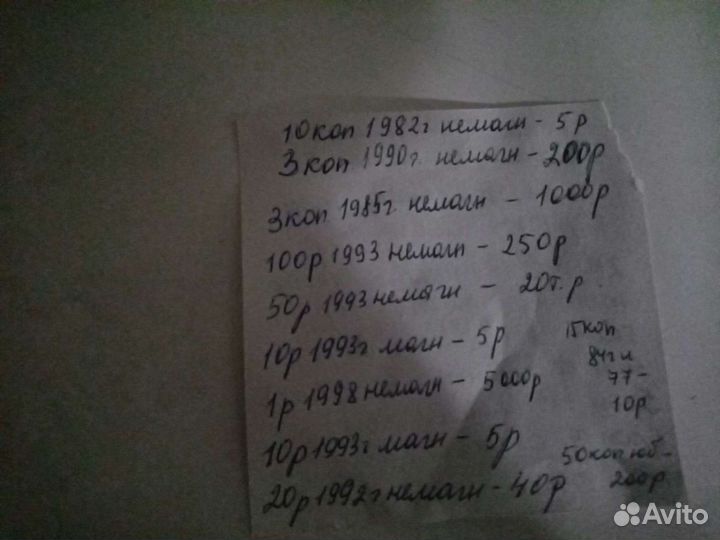 10 коп 1982г немагн - 5 р
3 коп. 1990г. немагн - 200р
3 коп. 1985г. немагн - 1000р
100р 1993 немагн - 250р
50р 1993 немагн - 20т. р.
10р 1993г магн - 5р
1р 1998 немагн - 5000р
10р 1993г магн - 5р
20р 1992г немагн - 40р
15коп
84г и
77-
10р
50коп юб -
200р.
Avito